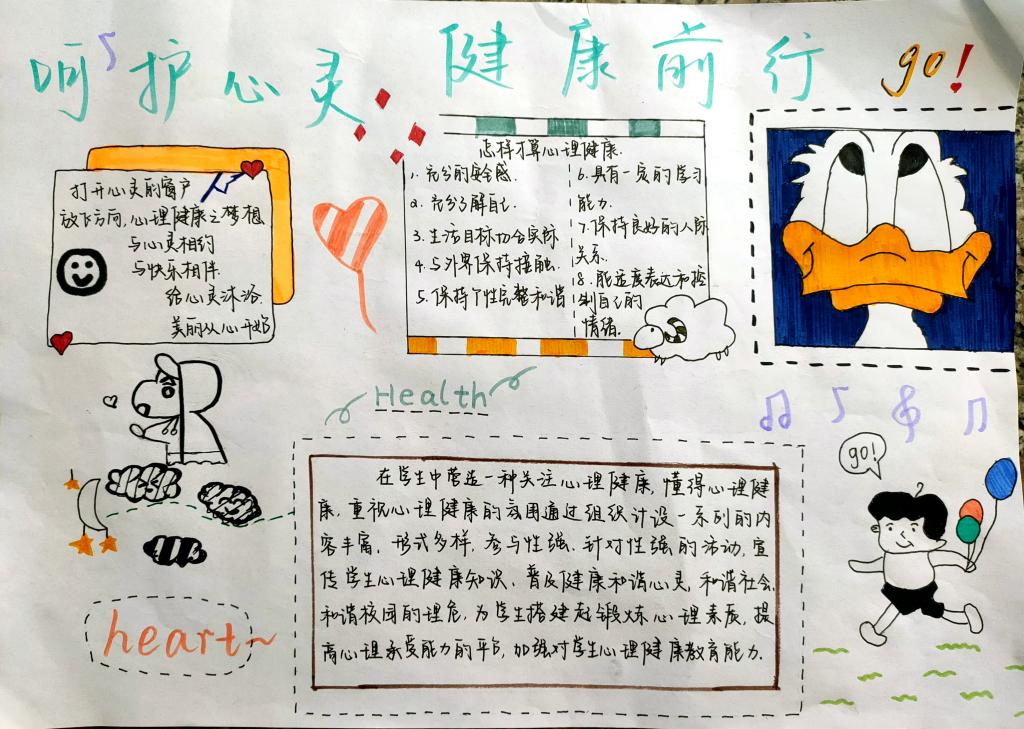 呵护心灵 健康前行 go!
打开心灵的窗户
放飞方向,心理健康之梦想
与心灵相约
与快乐相伴
给心灵沐浴
美丽从心开始
怎样才算心理健康
1. 充分的安全感.
2. 充分了解自己.
3. 生活目标切合实际
4. 与外界保持接触.
5. 保持个性完整和谐
6. 具有一定的学习
能力.
7. 保持良好的人际
关系.
8. 能适度表达和控
制自己的
情绪.
Health
在学生中营造一种关注心理健康,懂得心理健
康,重视心理健康的氛围通过组织计设一系列的内
容丰富,形式多样,参与性强、针对性强的活动,宣
传学生心理健康知识、普及健康和谐心灵,和谐社会,
和谐校园的理危,为学生搭建起锻炼心理素质,提
高心理承受能力的平台,加强对学生心理健康教育能力.
heart~
go!